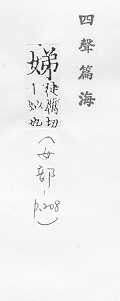 四聲篇海
娣
徒切
丨姒也
(女部-
p.208)